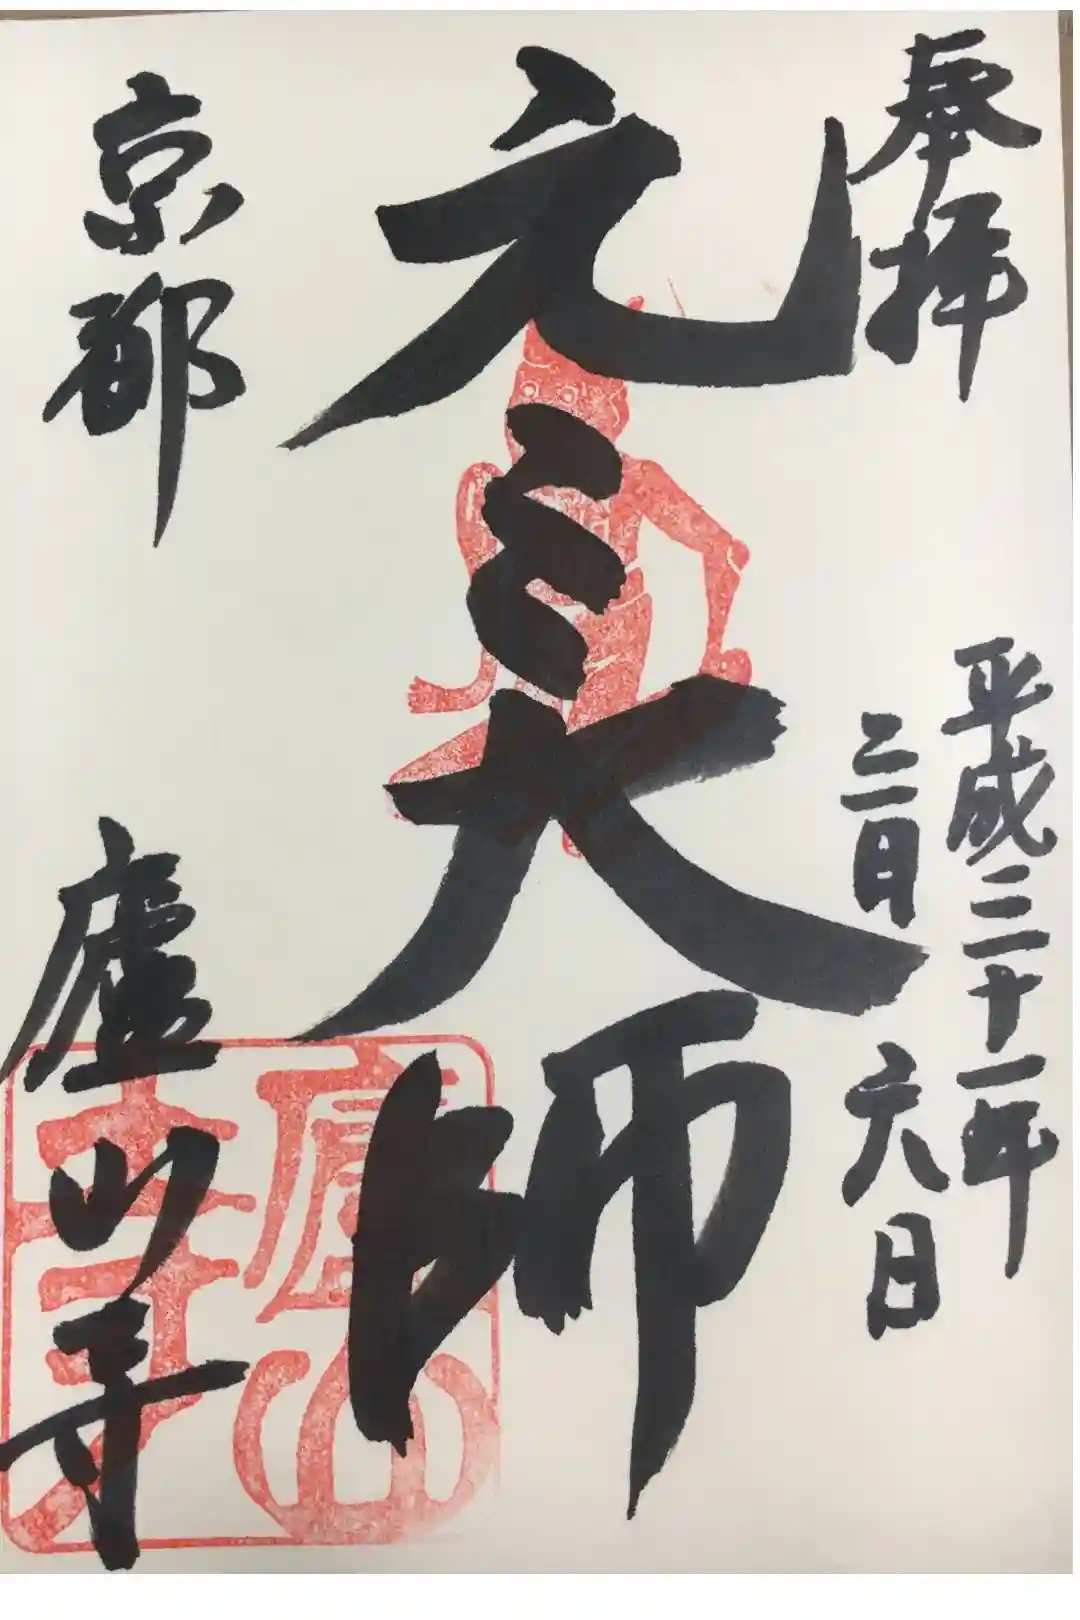 奉拝
平成三十一年
三月六日
元三大師
京都
廬山寺
廬山寺